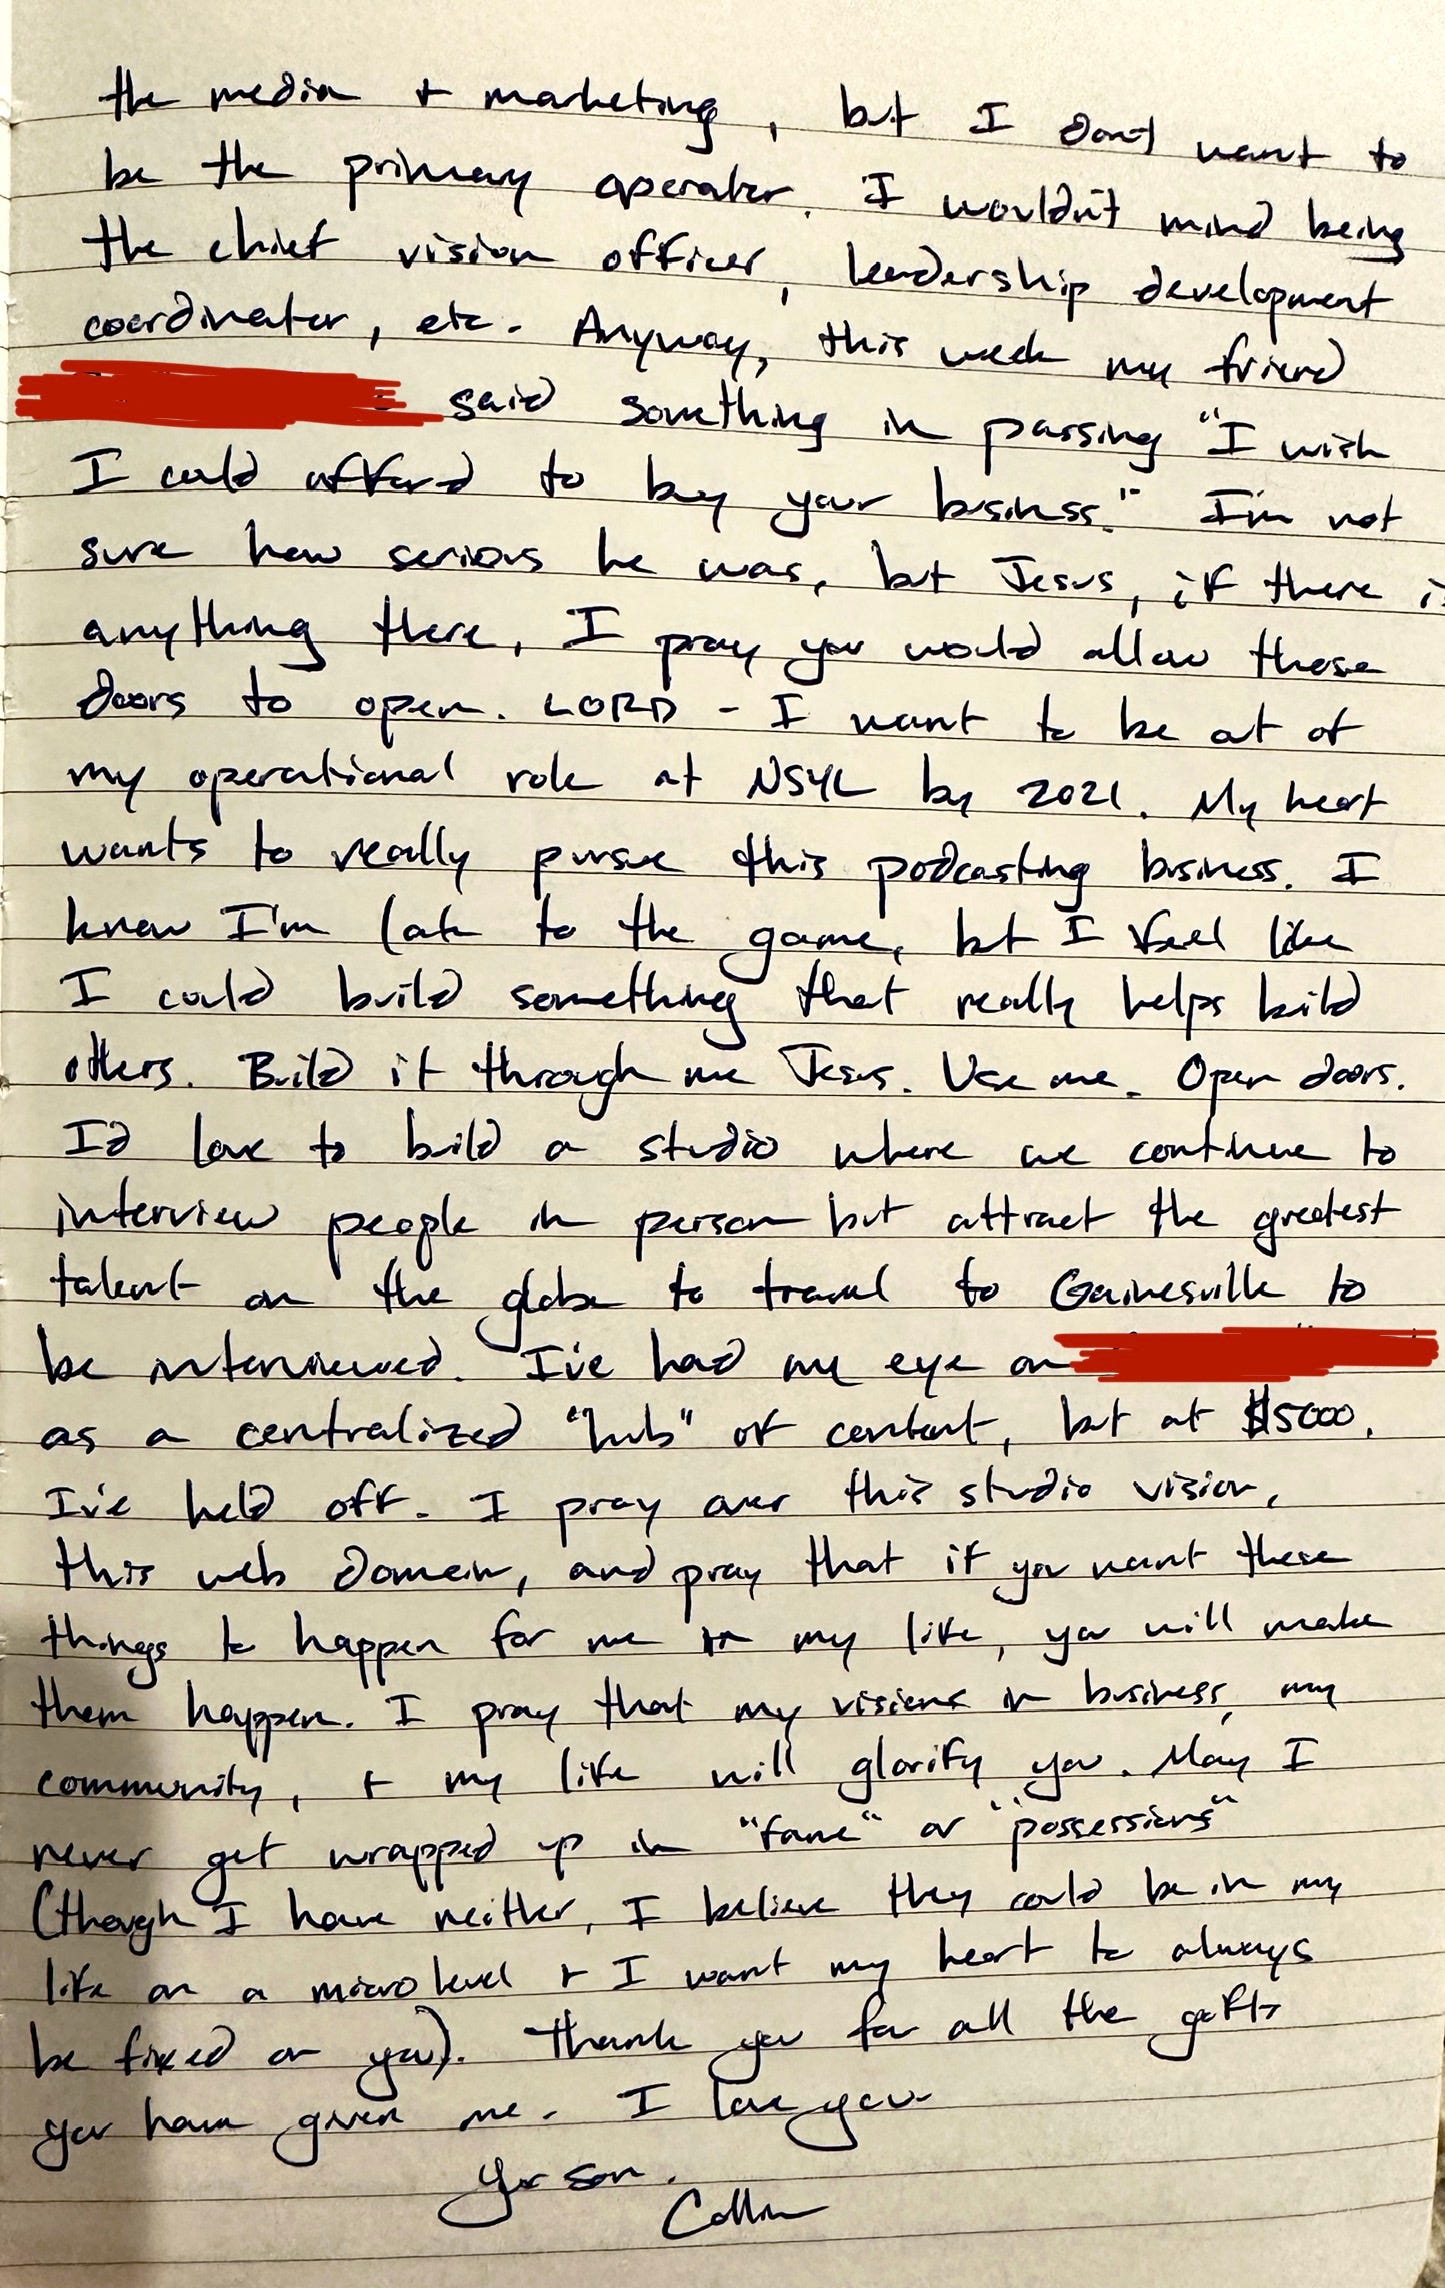 the media + marketing, but I don't want to
be the primary operator. I wouldn't mind being
the chief vision officer, leadership development
coordinator, etc. Anyway, this week my friend
said something in passing "I wish
I could afford to buy your business." I'm not
sure how serious he was, but Jesus, if there is
anything there, I pray you would allow those
doors to open. LORD - I want to be out of
my operational role at NSYL by 2021. My heart
wants to really pursue this podcasting business. I
know I'm late to the game, but I feel like
I could build something that really helps build
others. Build it through me Jesus. Use me. Open doors.
I'd love to build a studio where we continue to
interview people in person but attract the greatest
talent on the globe to travel to Gainesville to
be interviewed. I've had my eye on
as a centralized "hub" of content, but at $5000,
I've held off. I pray over this studio vision,
this web domain, and pray that if you want these
things to happen for me in my life, you will make
them happen. I pray that my visions in business, my
community, + my life will glorify you. May I
never get wrapped up in "fame" or "possessions"
(though I have neither, I believe they could be in my
life on a micro level + I want my heart to always
be fixed on you). Thank you for all the gifts
you have given me. I love you.
Your son,
Collin